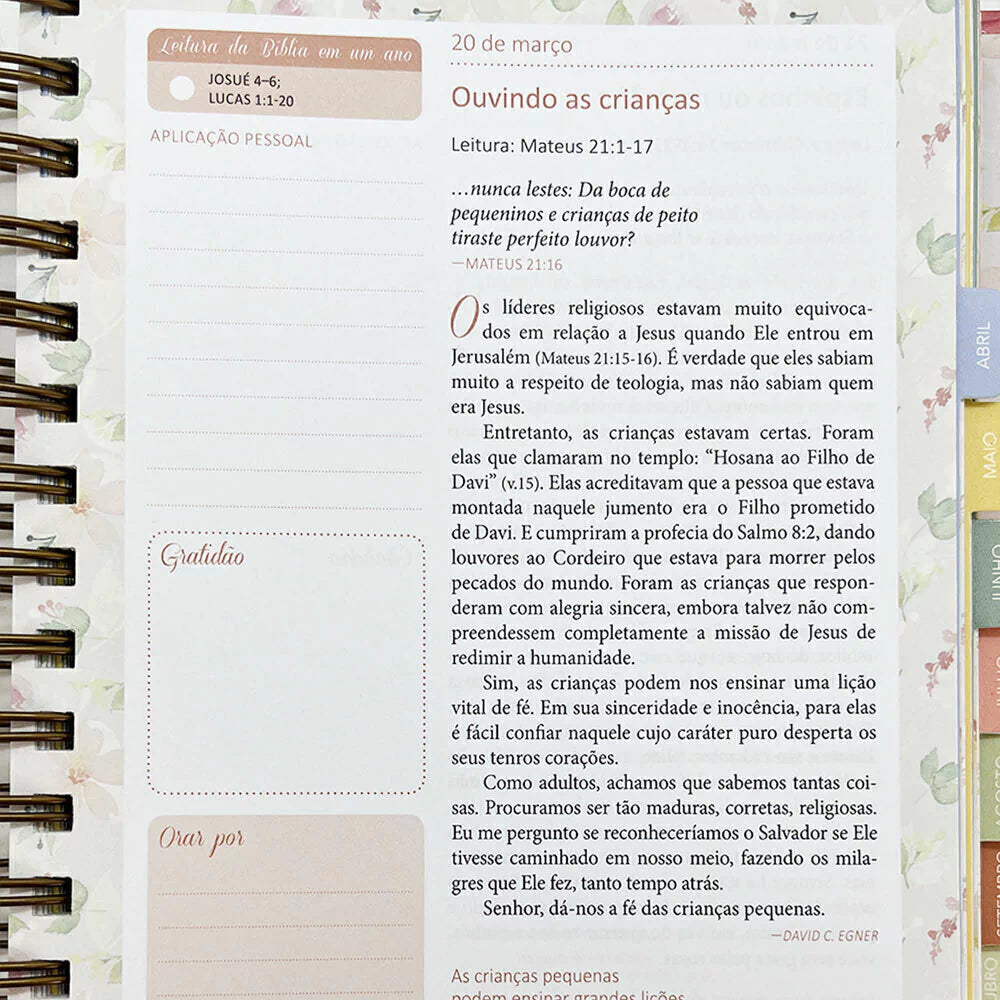 Leitura da Bíblia em um ano
JOSUÉ 4–6;
LUCAS 1:1-20
APLICAÇÃO PESSOAL
Gratidão
Orar por
20 de março
Ouvindo as crianças
Leitura: Mateus 21:1-17
…nunca lestes: Da boca de
pequeninos e crianças de peito
tiraste perfeito louvor?
—MATEUS 21:16
Os líderes religiosos estavam muito equivoca-
dos em relação a Jesus quando Ele entrou em
Jerusalém (Mateus 21:15-16). É verdade que eles sabiam
muito a respeito de teologia, mas não sabiam quem
era Jesus.
Entretanto, as crianças estavam certas. Foram
elas que clamaram no templo: “Hosana ao Filho de
Davi” (v.15). Elas acreditavam que a pessoa que estava
montada naquele jumento era o Filho prometido
de Davi. E cumpriram a profecia do Salmo 8:2, dando
louvores ao Cordeiro que estava para morrer pelos
pecados do mundo. Foram as crianças que respon-
deram com alegria sincera, embora talvez não com-
preendessem completamente a missão de Jesus de
redimir a humanidade.
Sim, as crianças podem nos ensinar uma lição
vital de fé. Em sua sinceridade e inocência, para elas
é fácil confiar naquele cujo caráter puro desperta os
seus tenros corações.
Como adultos, achamos que sabemos tantas coi-
sas. Procuramos ser tão maduras, corretas, religiosas.
Eu me pergunto se reconheceríamos o Salvador se Ele
tivesse caminhado em nosso meio, fazendo os mila-
gres que Ele fez, tanto tempo atrás.
Senhor, dá-nos a fé das crianças pequenas.
—DAVID C. EGNER
As crianças pequenas
podem ensinar grandes lições
ABRIL
MAIO
JUNHO
JULHO
AGOSTO
SETEMBRO